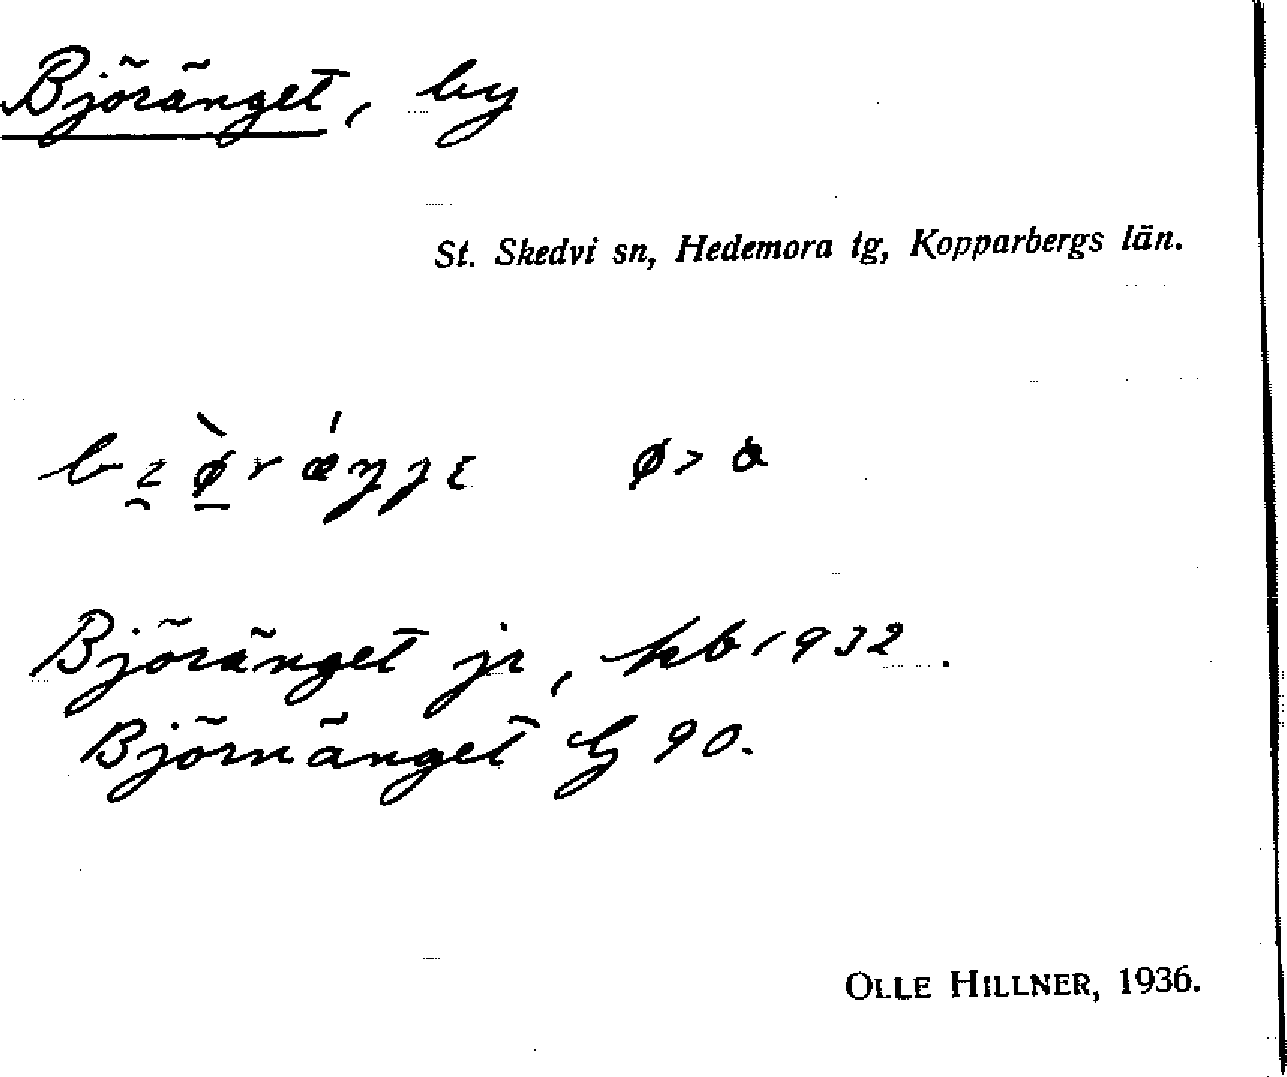 Björänget, by
St. Skedvi sn, Hedemora tg, Kopparbergs län.
Björänget jr, kb 1932.
Björnänget G 90.
OLLE HILLNER, 1936.